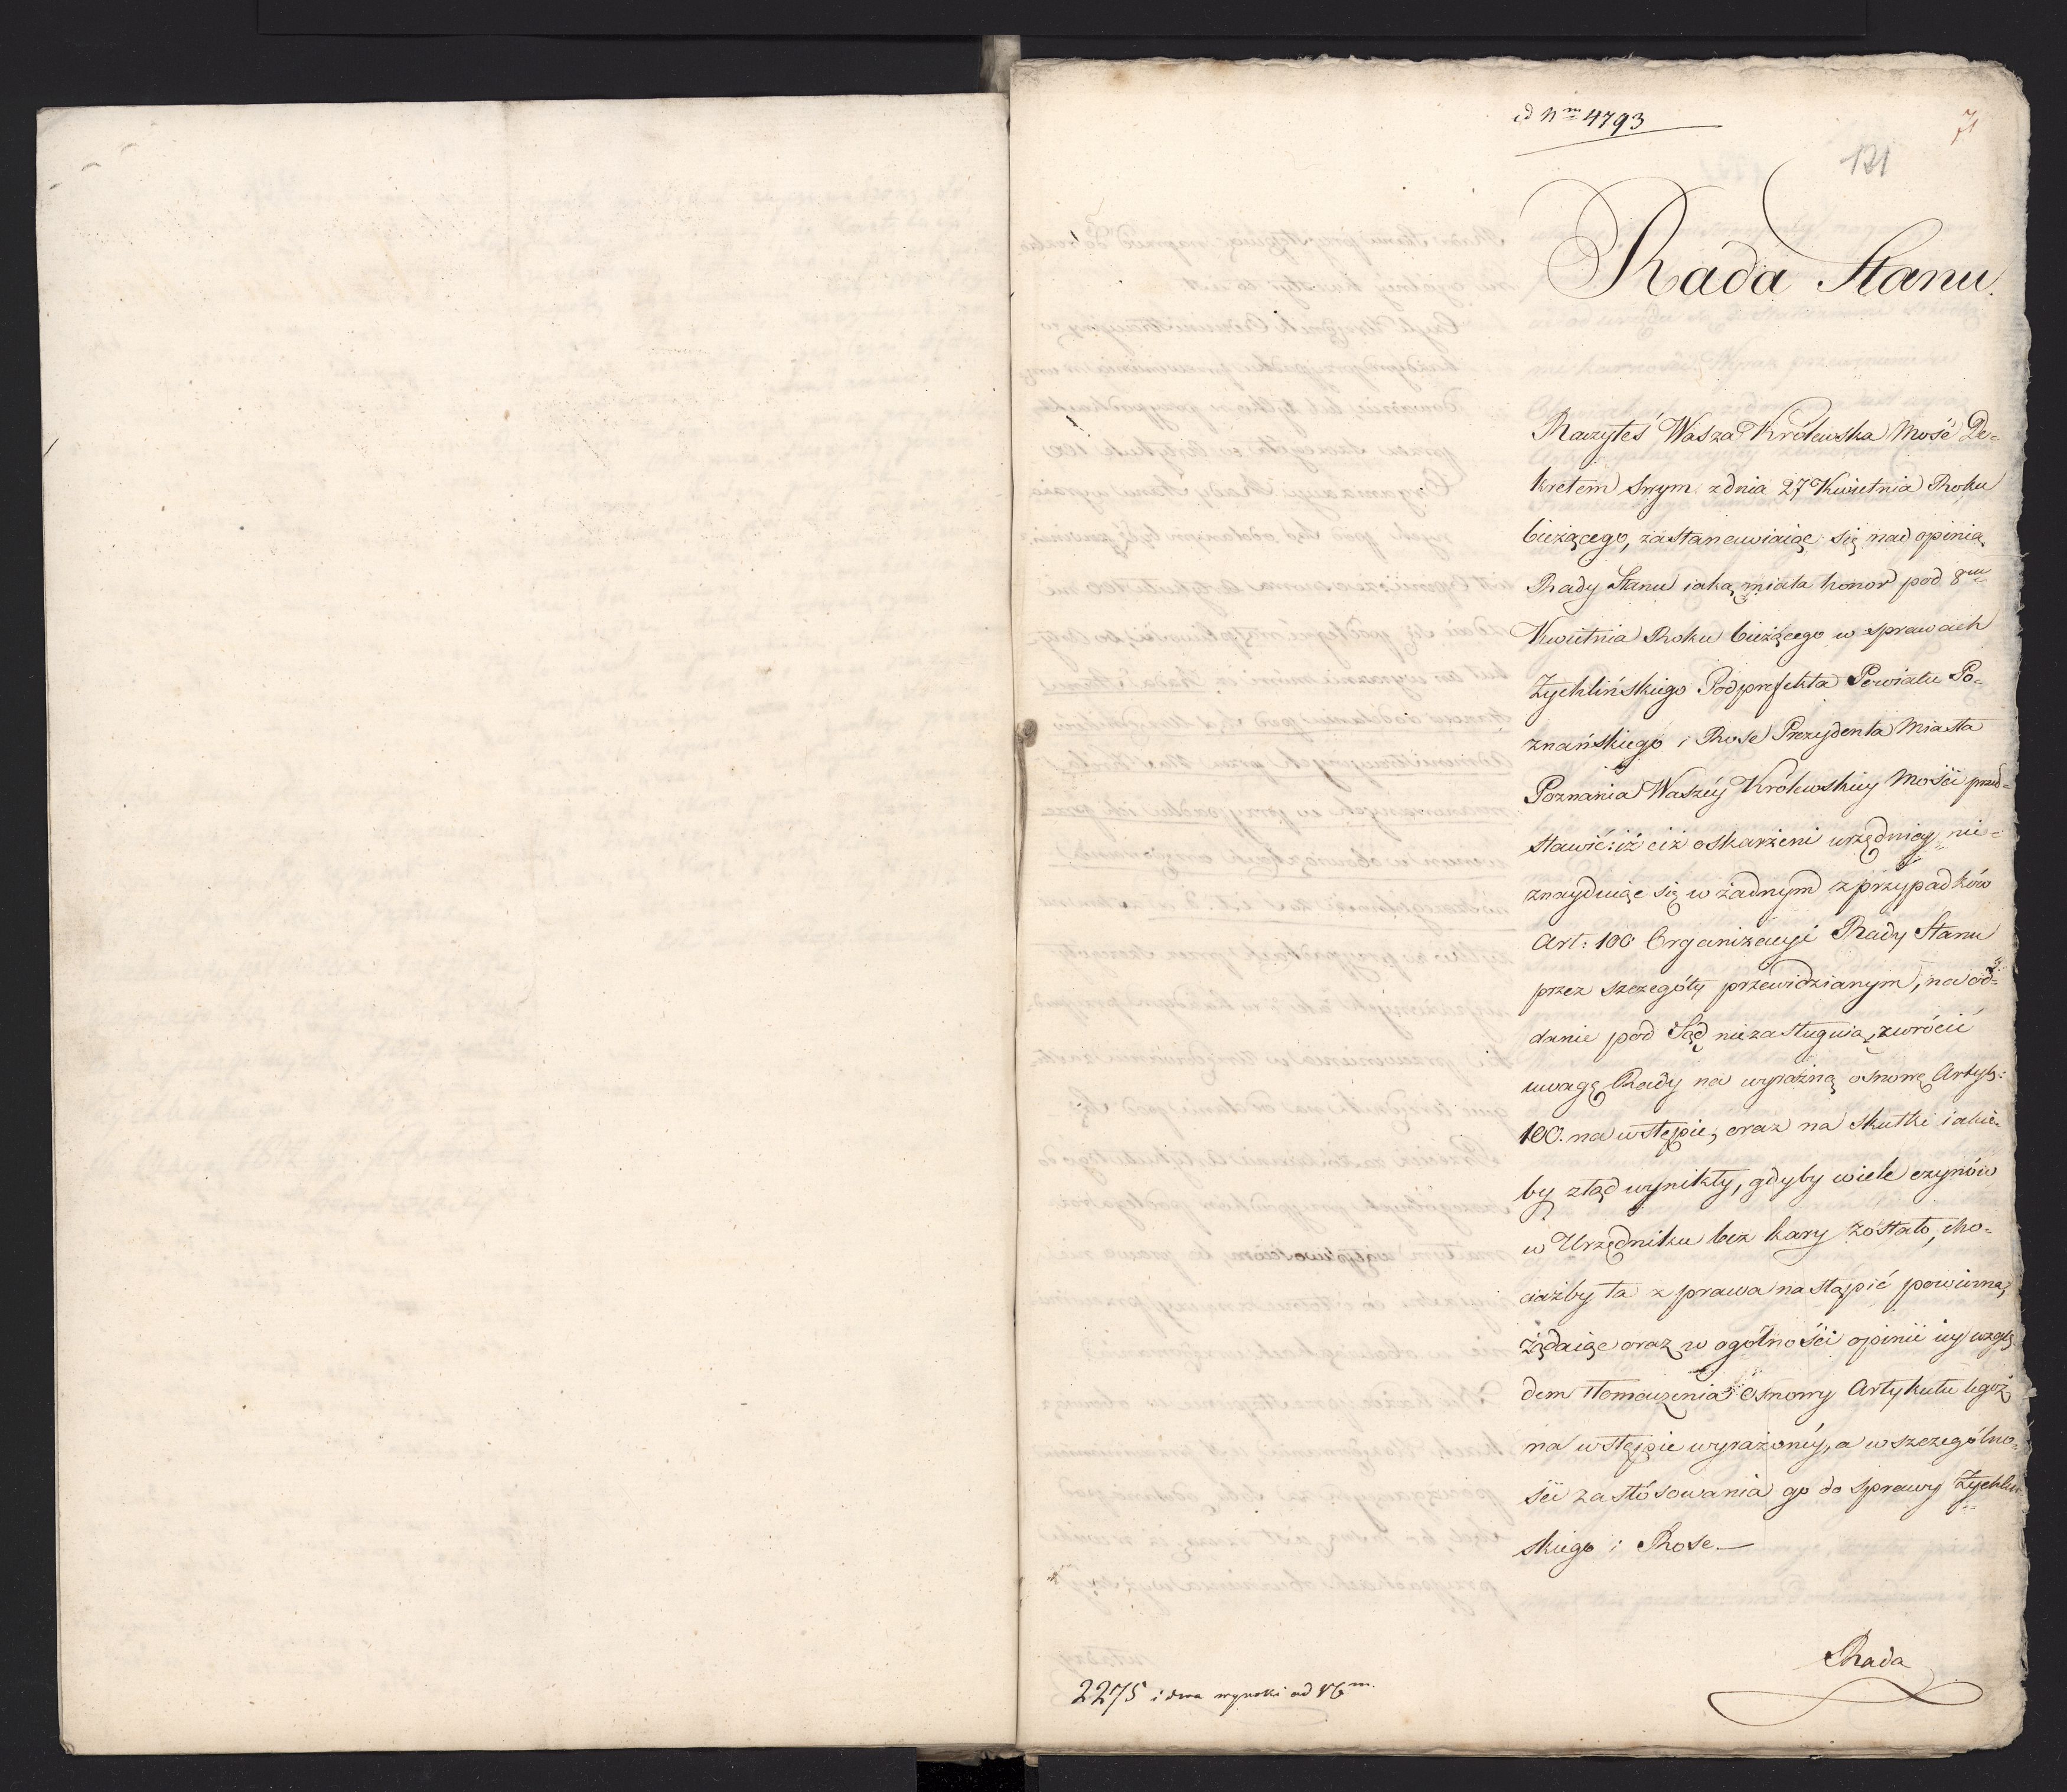 ad Nm 4793
71
121
Rada Stanu.
Raczyłeś Wasza Królewska Mość De-
kretem swym z dnia 27 Kwietnia Roku
bieżącego, zastanawiaiąc się nad opinią
Rady Stanu iaką miała honor pod 8m
Kwietnia Roku bieżącego w sprawach
Zychlińskiego Podprefekta Powiatu Po-
znańskiego i Rose Prezydenta Miasta
Poznania Waszéy Królewskiey Mości przed-
stawić: iż ciż oskarżeni urzędnicy nie-
znayduiąc się w żadnym z przypadków
Art: 100 Organizacyi Rady Stanu
przez szczegóły przewidzianym, na od-
danie pod Sąd niezasługuią, zwrócić
uwagę Rady na wyraźną osnowę Artyk:
100. na wstępie, oraz na skutki iakie-
by ztąd wynikły, gdyby wiele czynów
w Urzędniku bez kary zostało, cho-
ciażby ta z prawa nastąpić powinna,
żądaiąc oraz w ogólności opinii iey wzglę
dem tłomaczenia osnowy Artykułu tegoż
na wstępie wyrażonéy, a w szczególno-
ści zastósowania go do sprawy Zychliń
skiego i Rose.—
Rada
2275 i dwa wyroki ad 16m.